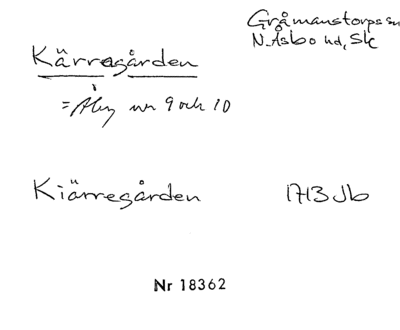 Gråmanstorps sn
N. Åsbo hd, Sk
Kärragården
= Åby nr 9 och 10
Kiärregården 1713 Jb
Nr 18362